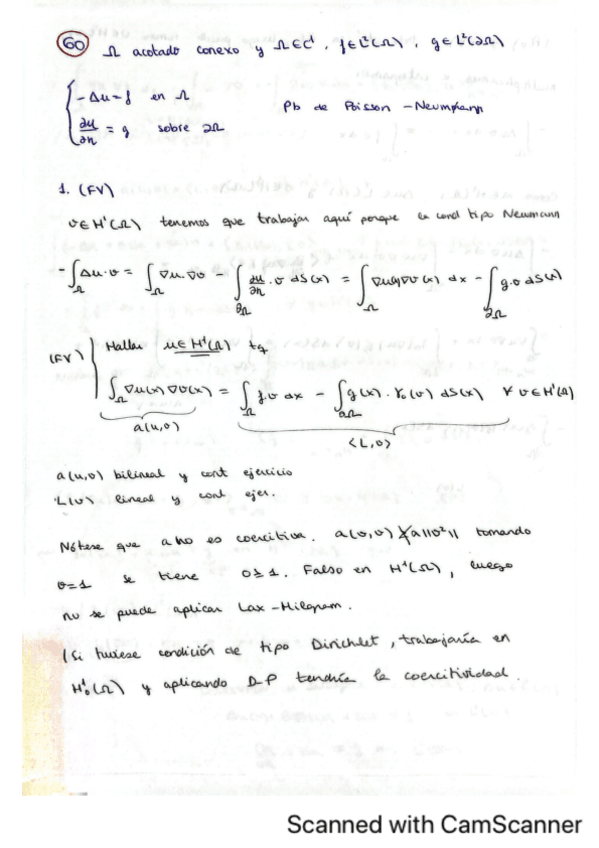 60 Ω acotado conexo y Ω ∈ C¹, f ∈ L²(Ω), g ∈ L²(∂Ω)
{ -Δu = f en Ω
∂u/∂n = g sobre ∂Ω
Pb de Poisson - Neumann
1. (FV)
v ∈ H¹(Ω) tenemos que trabajar aquí porque la cond tipo Neumann
-∫_Ω Δu·v = ∫_Ω ∇u·∇v - ∫_∂Ω ∂u/∂n · v dS(x) = ∫_Ω ∇u(x)∇v(x) dx - ∫_∂Ω g·v dS(x)
(FV) { Hallar u ∈ H¹(Ω) tq
∫_Ω ∇u(x)∇v(x) = ∫_Ω f·v dx - ∫_∂Ω g(x)·γ₀(v) dS(x) ∀ v ∈ H¹(Ω)
a(u,v) <L,v>
a(u,v) bilineal y cont ejercicio
L(v) lineal y cont ejer.
Nótese que a no es coercitiva. a(v,v) ≱ α||v²|| tomando
v=1 se tiene 0 ≥ 1. Falso en H¹(Ω), luego
no se puede aplicar Lax-Milgram.
(Si tuviese condición de tipo Dirichlet, trabajaría en
H¹₀(Ω) y aplicando D-P tendría la coercitividad.
Scanned with CamScanner